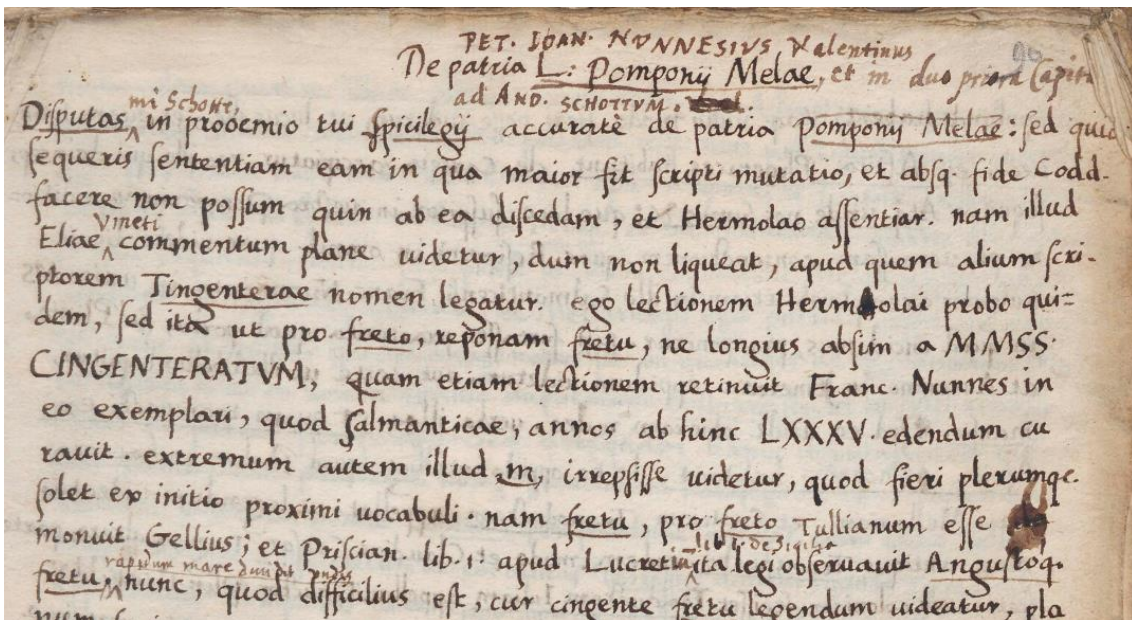 PET. IOAN. NVNNESIVS, Valentinus
De patria L: Pomponij Melae, et in duo priora Capita
ad AND. SCHOTTVM.
mi Schotte,
Disputas in prooemio tui spicilegij accuratè de patria Pomponij Melae: sed quia
sequeris sententiam eam in qua maior fit scripti mutatio, et absq. fide Codd.
facere non possum quin ab ea discedam, et Hermolao assentiar. nam illud
Vineti
Eliae commentum plane uidetur, dum non liqueat, apud quem alium scri-
ptorem Tingenterae nomen legatur. ego lectionem Hermolai probo qui=
dem, sed ita ut pro freto, reponam fretu, ne longius absim a MMSS.
CINGENTERATVM, quam etiam lectionem retinuit Franc. Nunnes in
eo exemplari, quod Salmanticae, annos ab hinc LXXXV. edendum cu
rauit. extremum autem illud m, irrepsisse uidetur, quod fieri plerumqe.
solet ex initio proximi uocabuli. nam fretu, pro freto Tullianum esse
monuit Gellius; et Priscian. lib. 1. apud Lucretium ita legi obseruauit Angustoq.
rapidum mare diuidit undis
fretu nunc, quod difficilius est, cur cingente fretu legendum uideatur, pla